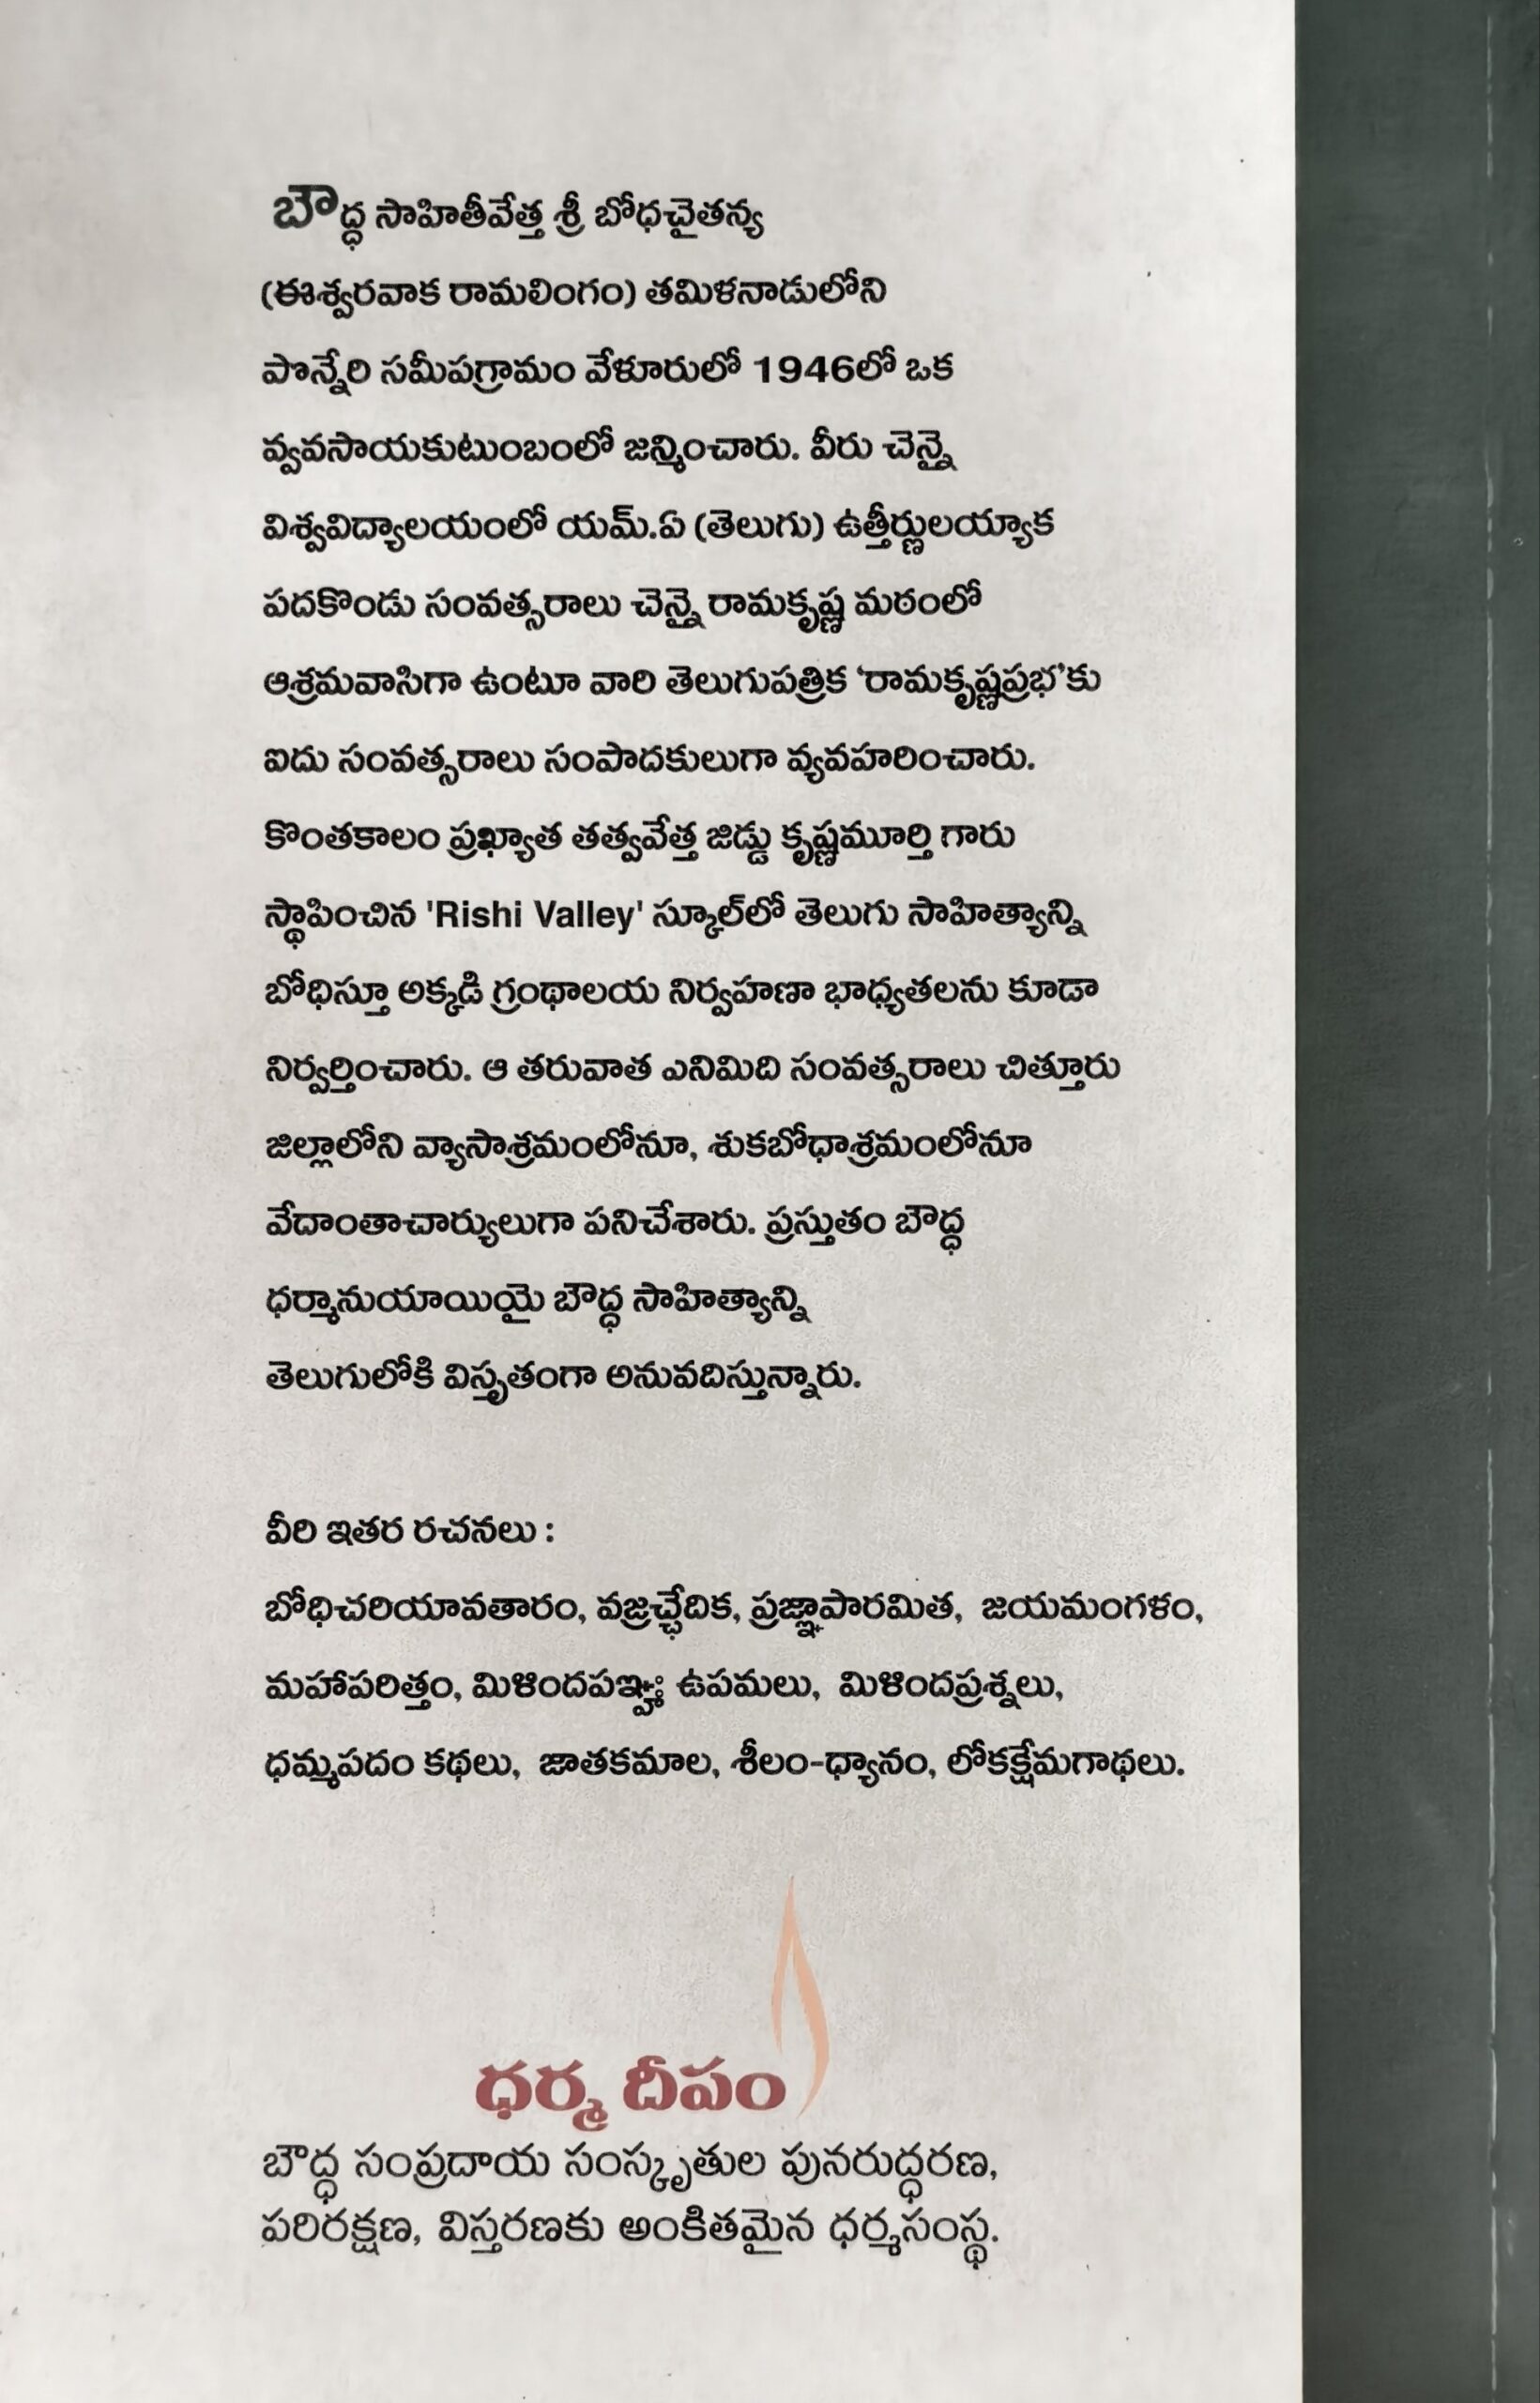 బౌద్ధ సాహితీవేత్త శ్రీ బోధచైతన్య
(ఈశ్వరవాక రామలింగం) తమిళనాడులోని
పొన్నేరి సమీపగ్రామం వేళూరులో 1946లో ఒక
వ్వవసాయకుటుంబంలో జన్మించారు. వీరు చెన్నై
విశ్వవిద్యాలయంలో యమ్.ఏ (తెలుగు) ఉత్తీర్ణులయ్యాక
పదకొండు సంవత్సరాలు చెన్నై రామకృష్ణ మఠంలో
ఆశ్రమవాసిగా ఉంటూ వారి తెలుగుపత్రిక ‘రామకృష్ణప్రభ’కు
ఐదు సంవత్సరాలు సంపాదకులుగా వ్యవహరించారు.
కొంతకాలం ప్రఖ్యాత తత్వవేత్త జిడ్డు కృష్ణమూర్తి గారు
స్థాపించిన 'Rishi Valley' స్కూల్‌లో తెలుగు సాహిత్యాన్ని
బోధిస్తూ అక్కడి గ్రంథాలయ నిర్వహణా భాధ్యతలను కూడా
నిర్వర్తించారు. ఆ తరువాత ఎనిమిది సంవత్సరాలు చిత్తూరు
జిల్లాలోని వ్యాసాశ్రమంలోనూ, శుకబోధాశ్రమంలోనూ
వేదాంతాచార్యులుగా పనిచేశారు. ప్రస్తుతం బౌద్ధ
ధర్మానుయాయియై బౌద్ధ సాహిత్యాన్ని
తెలుగులోకి విస్తృతంగా అనువదిస్తున్నారు.
వీరి ఇతర రచనలు :
బోధిచరియావతారం, వజ్రచ్ఛేదిక, ప్రజ్ఞాపారమిత, జయమంగళం,
మహాపరిత్తం, మిళిందపఞ్హ ఉపమలు, మిళిందప్రశ్నలు,
ధమ్మపదం కథలు, జాతకమాల, శీలం-ధ్యానం, లోకక్షేమగాథలు.
ధర్మ దీపం
బౌద్ధ సంప్రదాయ సంస్కృతుల పునరుద్ధరణ,
పరిరక్షణ, విస్తరణకు అంకితమైన ధర్మసంస్థ.